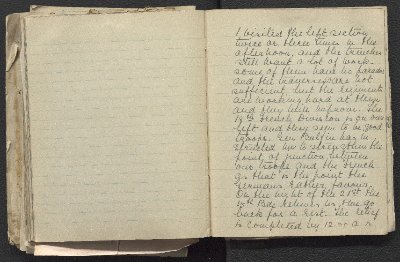 I visited the left section
twice or three times in the
afternoon, and the trenches
still want a lot of work
some of them have no parados
and the traverses are not
sufficient, but the regiments
are working hard at them
and they will improve. The
18th French Division is on our
left and they seem to be good
troops. Gen
me to strengthen the
point of junction between
our troops and the French
as that is the point the
Germans rather favour.
On the night of the 21st the
Bde relieves us, & we go
back for a rest. The relief
is completed by 12